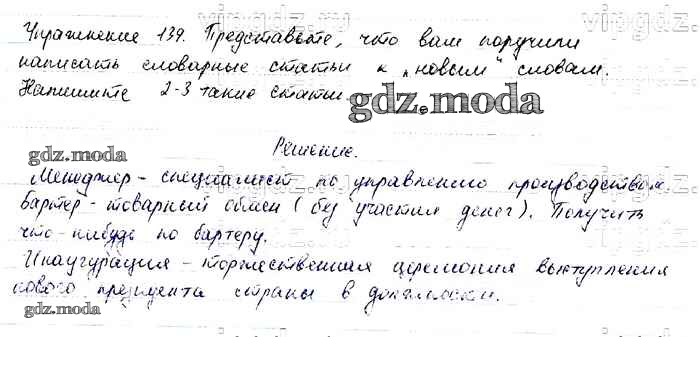 vipgdz.ru vipgdz.ru
Упражнение 139. Представьте, что вам поручили
написать словарные статьи к „новым" словам.
Напишите 2-3 такие статьи.
gdz.moda
Решение.
gdz.moda
Менеджер - специалист по управлению производством.
Бартер - товарный обмен (без участия денег). Получить
что-нибудь по бартеру.
Инаугурация - торжественная церемония выступления
нового президента страны в должность.
gdz.moda